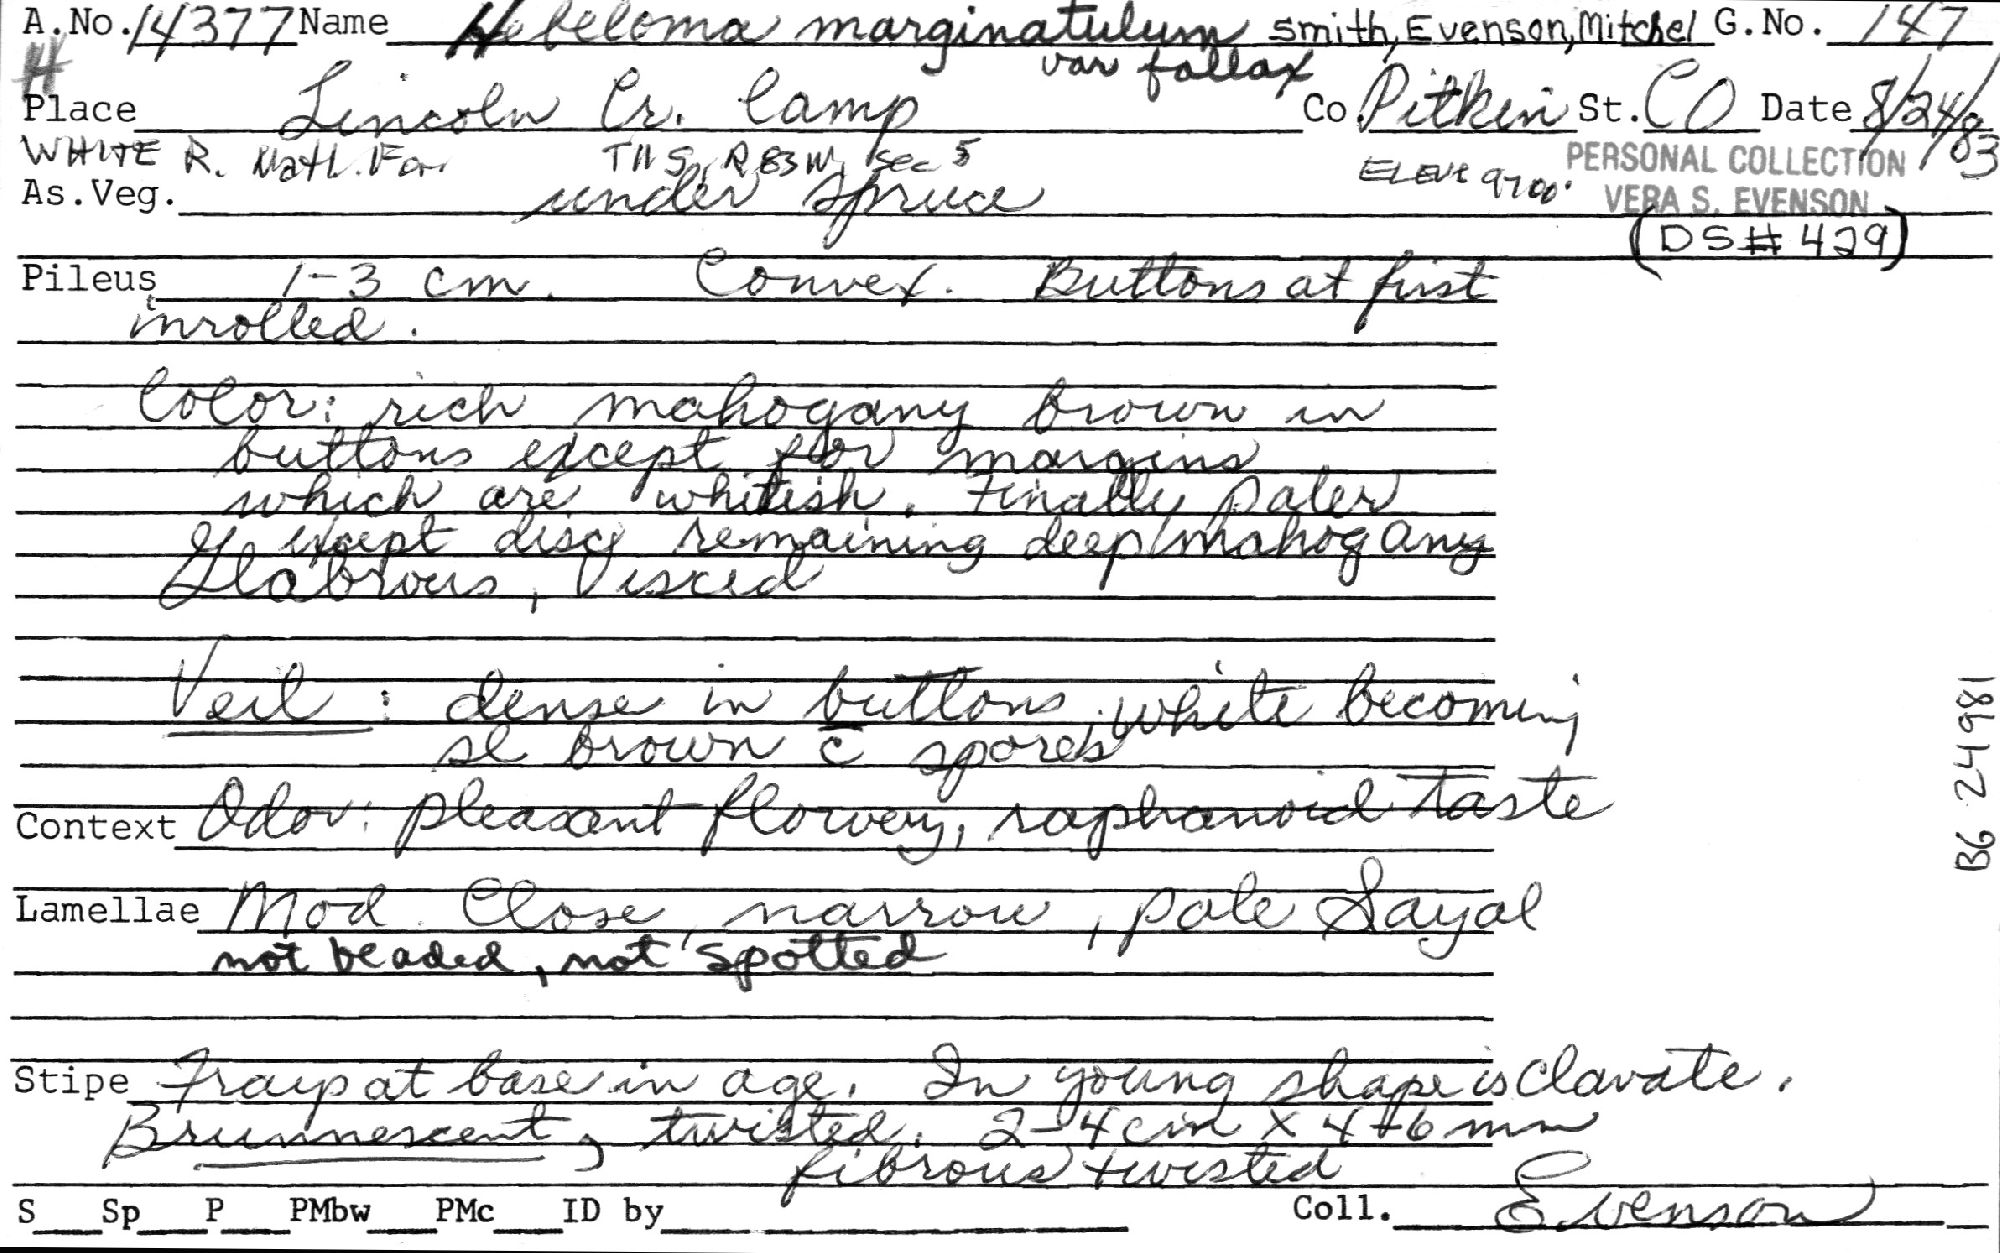 A.No. 14377 Name Hebeloma marginatulum Smith, Evenson, Mitchel G.No. 147
H var fallax
Place Lincoln Cr. Camp Co. Pitkin St. CO Date 8/24/83
WHITE R. Natl. For. T11S, R83W, Sec 5 ELEV. 9700' PERSONAL COLLECTION
As.Veg. under spruce VERA S. EVENSON
(DS# 429)
Pileus 1-3 cm. Convex. Buttons at first
inrolled.
Color: rich mahogany brown in
buttons except for margins
which are whitish. Finally paler
except disc remaining deep mahogany
Glabrous, Viscid
Veil: dense in buttons, white becoming
sl brown c̄ spores
Context Odor: pleasant flowery, raphanoid taste
Lamellae Mod Close, narrow, pale Sayal
not beaded, not spotted
Stipe Frays at base in age. In young shape is clavate.
Brunnescent, twisted. 2-4 cm X 4-6 mm
fibrous twisted
S Sp P PMbw PMc ID by Coll. Evenson
B6 24981